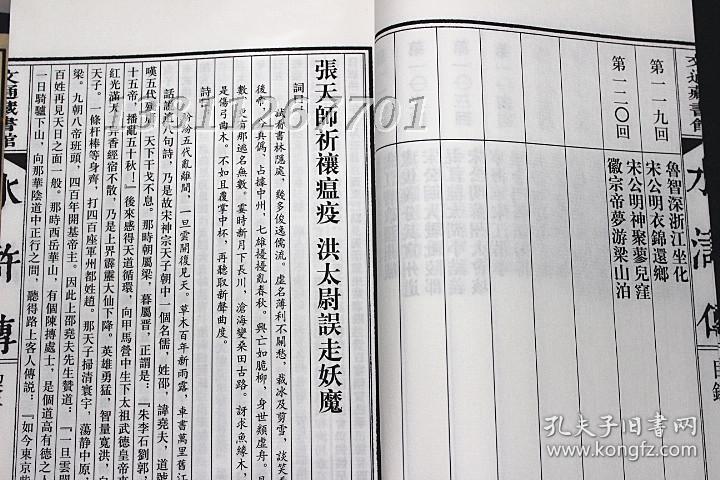 文通藏書館 水滸傳 目錄
第一一九回 魯智深浙江坐化
宋公明衣錦還鄉
第一二〇回 宋公明神聚蓼兒窪
徽宗帝夢游梁山泊
張天師祈禳瘟疫 洪太尉誤走妖魔
詞曰：
試看書林隱處，幾多俊逸儒流。虛名薄利不關愁，裁冰及剪雪，談笑看
後帝，兵偽，占據中州，七雄擾擾亂春秋。興亡如脆柳，身世類虛舟。
數，更有那逃名無數，霎時新月下長川，滄海變桑田古路。訝求魚緣木，
是傷弓曲木。不如且覆掌中杯，再聽取新聲曲度。
詩曰：
紛紛五代亂離間，一旦雲開復見天。草木百年新雨露，車書萬里舊江
話說這八句詩，乃是故宋神宗天子朝中一個名儒，姓邵，諱堯夫，道號
嘆五代殘，天下干戈不息。那時朝屬梁，暮屬晉，正謂是：『朱李石劉郭，
十五帝，播亂五十秋！』後來感得天道循環，向甲馬營中生下太祖武德皇帝來
紅光滿天，異香經宿不散，乃是上界霹靂大仙下降。英雄勇猛，智量寬洪，自
天子。一條杆棒等身齊，打四百座軍州都姓趙。那天子掃清寰宇，蕩靜中原，
梁。九朝八帝班頭，四百年開基帝主。因此上邵堯夫先生贊道：『一旦雲開
百姓再見天日之面一般。那時西岳華山，有個陳摶處士，是個道高有德之人
一日騎驢下山，向那華陰道中正行之間，聽得路上客人傳說：『如今東京柴
文通藏書館 水滸傳
孔夫子旧书网
kongfz.com